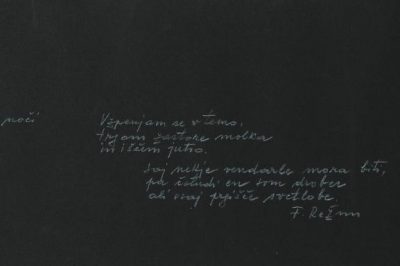 noči
Vzpenjam se v temo,
trgam zastore molka
in iščem jutro.
saj nekje vendarle mora biti,
pa čtudi en sam drobec
ali vsaj prgišče svetlobe.